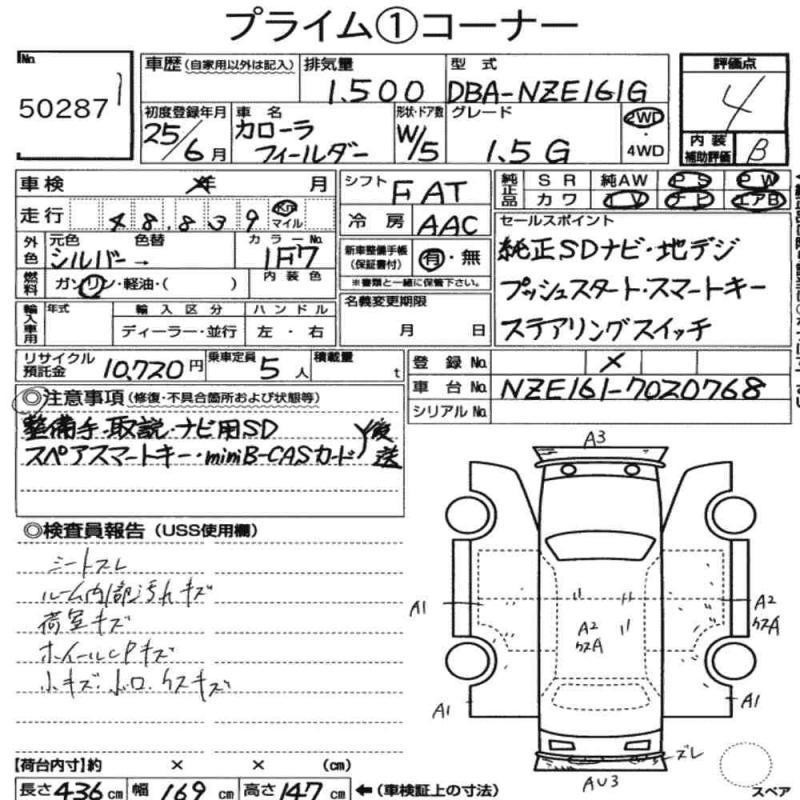 プライム①コーナー
No.
50287
車歴(自家用以外は記入)
排気量
1.500
型式
DBA-NZE161G
評価点
4
内装
補助評価
B
初度登録年月
25/6月
車名
カローラ
フィールダー
形状・ドア数
W/5
グレード
1.5G
2WD
・
4WD
車検 年 月
シフト
FAT
純正品
SR 純AW PS PW
カワ TV ナビ エアB
走行
48,839
Km
マイル
冷房
AAC
セールスポイント
純正SDナビ・地デジ
プッシュスタート・スマートキー
ステアリングスイッチ
外色
元色
シルバー
色替
→
カラーNo.
1F7
内装色
新車整備手帳
(保証書付)
有・無
※書類と一緒に保管下さい。
燃料
ガソリン・軽油・( )
名義変更期限
月 日
輸入車用
年式
輸入区分
ハンドル
ディーラー・並行
左・右
リサイクル
預託金
10,720円
乗車定員
5人
積載量
t
登録No.
×
車台No.
NZE161-7020768
シリアルNo.
◎注意事項(修復・不具合箇所および状態等)
整備手・取説・ナビ用SD
スペアスマートキー・miniB-CASカード
後送
◎検査員報告(USS使用欄)
シートスレ
ルーム内部汚れキズ
荷室キズ
ホイールCPキズ
小キズ・ボコ・ケスキズ
A3
A1
A2
ケスA
A2
ケスA
A1
A1
ズレ
AU3
スペア
【荷台内寸】約 × × (cm)
長さ436cm 幅169cm 高さ147cm ←(車検証上の寸法)